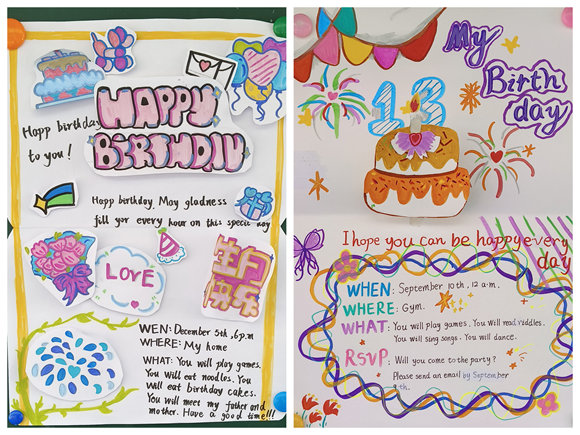 HAPPY
BIRTHDAY
Happ birthday
to you!
Happ birthday. May gladness
fill your every hour on this special day
LOVE
生日
快乐
WEN: December 5th, 6p.m
WHERE: My home
WHAT: You will play games.
You will eat noodles. You
will eat birthday cakes.
You will meet my father and
mother. Have a good time!!!
My
Birth
day
13
I hope you can be happy every
day
WHEN: September 10th, 12 a.m.
WHERE: Gym.
WHAT: You will play games. You will read riddles.
You will sing songs. You will dance.
RSVP: Will you come to the party?
Please send an email by September
9th.